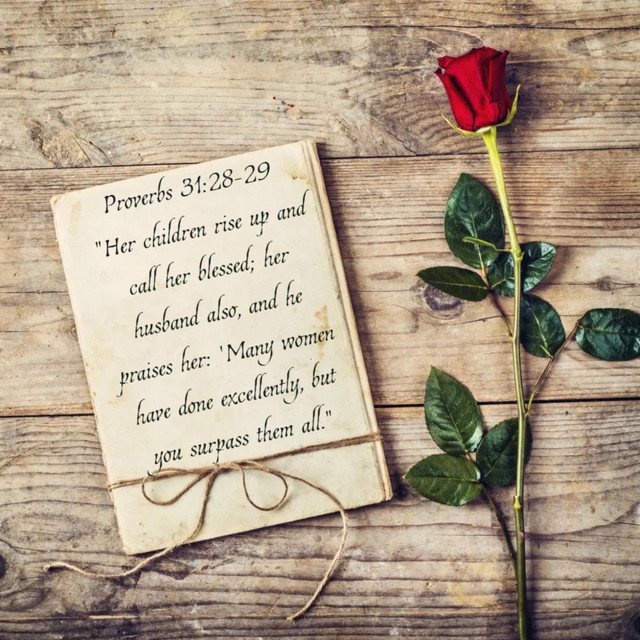 Proverbs 31:28-29
"Her children rise up and
call her blessed; her
husband also, and he
praises her: 'Many women
have done excellently, but
you surpass them all."